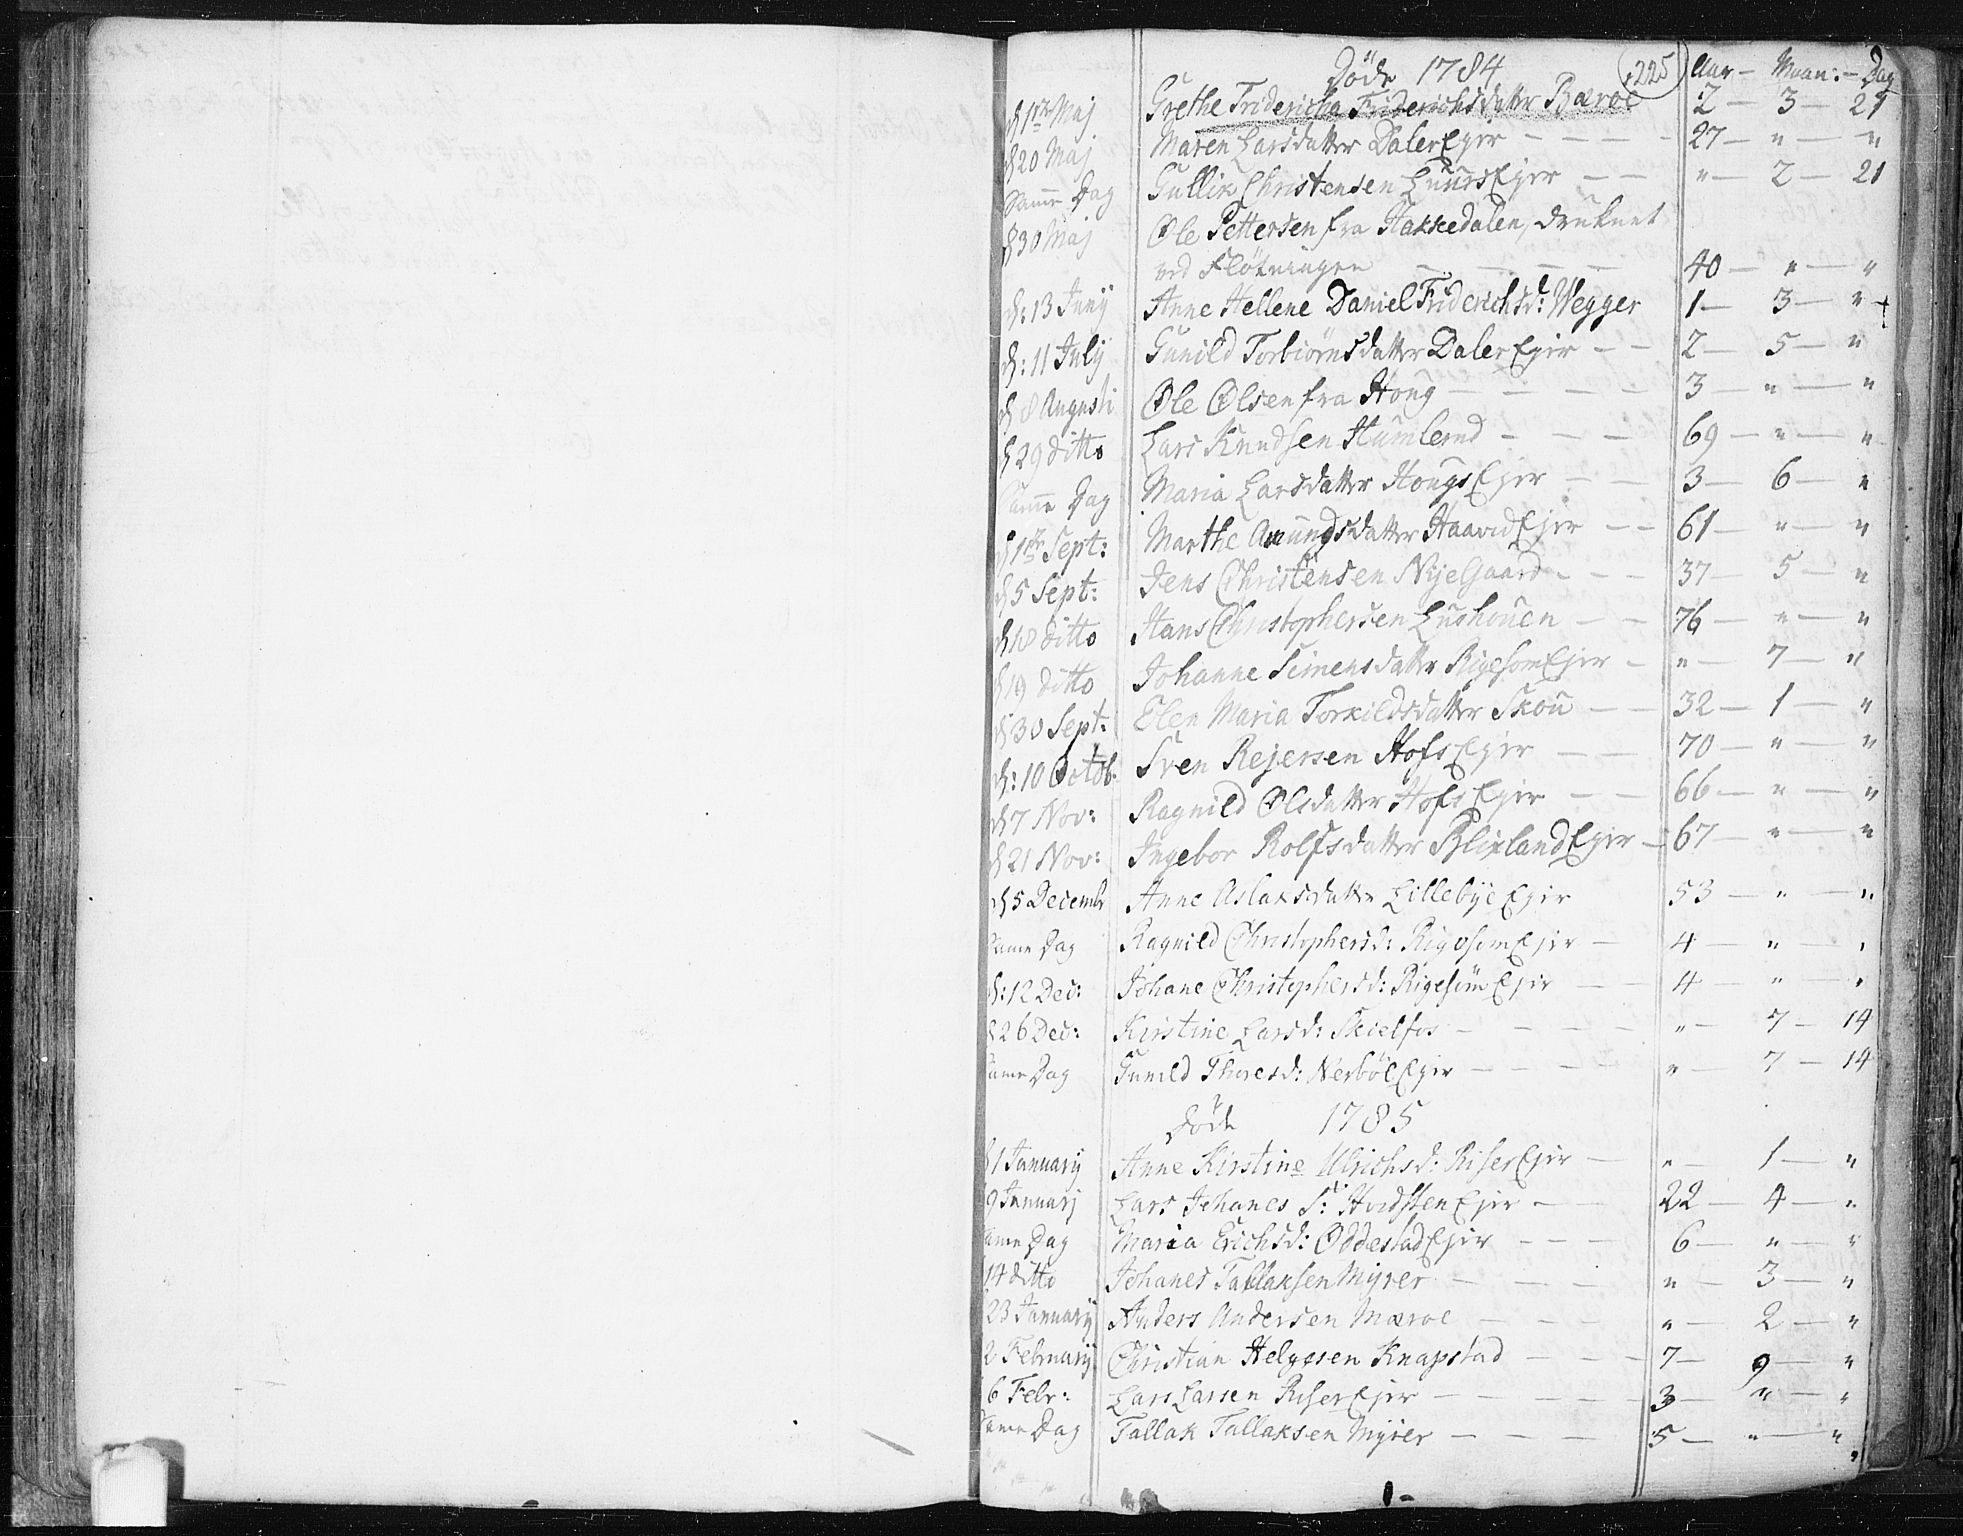 Døde 1784 225 Aar – Maan: – Dag
d 1ste Maj Grethe Fridericha Friderichsdatter Baroe 2 – 3 – 21
d 20 Maj Maren Larsdatter DalerEjer – – – – 27 – " – "
Samme Dag Gullik Christensen LuursEjer – – " – 2 – 21
d 30 Maj Ole Pettersen fra Hakkedalen, druknet
ved Fløtningen – – – – 40 – " – "
d: 13 Junÿ Anne Hellene Daniel Friderichsd: Wegger 1 – 3 – "
d: 11 July Gunild Torbiørnsdatter DalerEjer – – 2 – 5 – "
d 8 Augusti Ole Olsen fra Houg – – – – 3 – " – "
d 29 ditto Lars Knudsen Humlerud – – – 69 – " – "
Samme Dag Maria Larsdatter HougsEjer – – 3 – 6 – "
d 1ste Sept: Marthe Amundsdatter HaavidEjer – – 61 – " – "
d 5 Sept: Jens Christensen NyeGaard – – – 37 – 5 – "
d 18 ditto Hans Christophersen Lushouen – – 76 – " – "
d 19 ditto Johanne Simensdatter RigesomEjer – " – 7 – "
d 30 Sept: Elen Maria Torkildsdatter Skou – – 32 – 1 – "
d: 10 Octob: Sven Rejersen HofsEjer – – – 70 – " – "
d 7 Nov: Ragnild Olsdatter HofsEjer – – 66 – " – "
d 21 Nov: Ingebor Rolfsdatter BlixlandEjer – 67 – " – "
d 5 Decembr Anne Aslaksdatter LillebyeEjer 53 – " – "
Same Dag Ragnild Christophersd: RigesomEjer – 4 – " – "
d: 12 Dec: Johane Christophersd: RigesomEjer – – 4 – " – "
d 26 Dec: Kirstine Larsd: Skielfos – – – – – " – 7 – 14
Same Dag Gunild Thoresd: NerbølEjer – – – – " – 7 – 14
Døde 1785
d 1 January Anne Kirstine Ulrichsd: RiserEjer – " – 1 – "
9 January Lars Johanes S: HvidstenEjer – – 22 – 4 – "
Same Dag Maria Erichsd: OddestadEjer – – – 6 – " – "
14 ditto Johanes Tallaksen Myrer – – – – " – 3 – "
23 January Anders Andersen Maroe – – – " – 2 – "
2 February Christian Helgesen Knapstad – – – – 7 – 9 – "
6 Febr: Lars Larsen RiserEjer – – – – 3 – " – "
Same Dag Tallak Tallaksen Myrer – – – – 5 – " – "